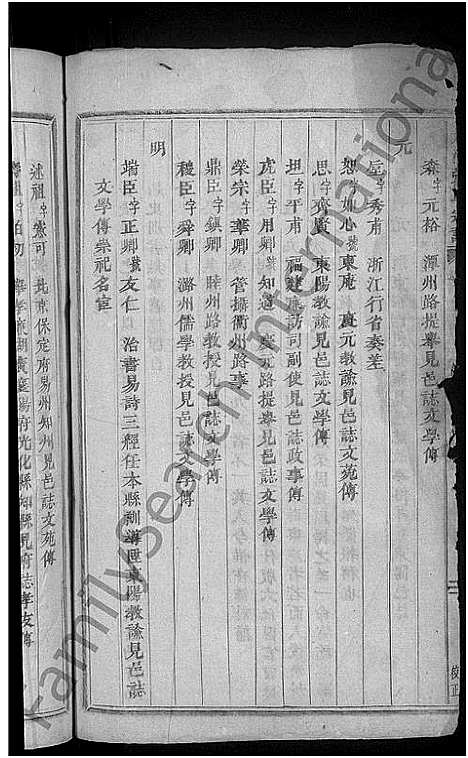 元
森字元裕　潭州路提舉見邑誌文學傳
垕字秀甫　浙江行省奏差
恕字如心號東庵　慶元教諭見邑誌文苑傳
思字齊賢　東陽教諭見邑誌文學傳
坦字平甫　福建廉訪司副使見邑誌政事傳
虎臣字用卿　知道　慶元路提舉見邑誌文學傳
榮宗字華卿　管攝衢州路事
鼎臣字鎮卿　睦州路教授見邑誌文學傳
稷臣字舜卿　潞州儒學教授見邑誌文學傳
明
瑞臣字正卿號友仁　治書易詩三經任本縣訓導陞東陽教諭見邑誌
文學傳崇祀名宦
述祖字憲可　北京保定府易州知州見邑誌文苑傳
祖字伯初　舉孝廉湖廣襄陽府光化縣知縣見府誌孝友傳
校正
familysearch international